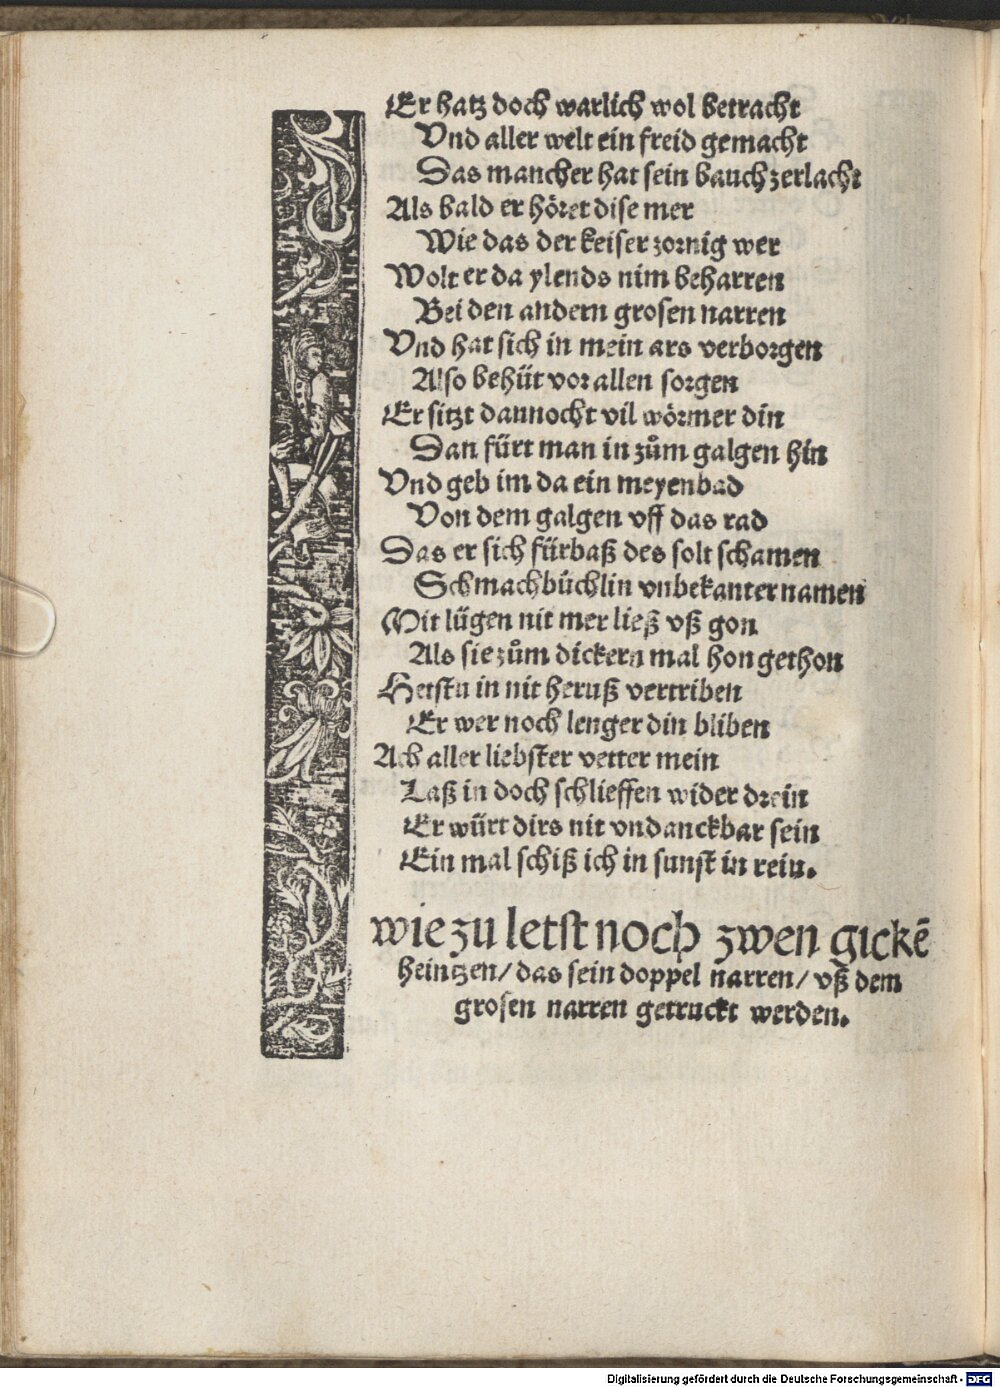 Er hatz doch warlich wol betracht
Vnd aller welt ein freid gemacht
Das mancher hat sein bauch zerlacht
Als bald er höret dise mer
Wie das der keiser zornig wer
Wolt er da ylends nim beharren
Bei den andern grosen narren
Vnd hat sich in mein ars verborgen
Also behüt vor allen sorgen
Er sitzt dannocht vil wörmer din
Dan fürt man in zům galgen hin
Vnd geb im da ein meyenbad
Von dem galgen vff das rad
Das er sich fürbaß des solt schamen
Schmachbüchlin vnbekanter namen
Mit lügen nit mer ließ vß gon
Als sie zům dickern mal hon gethon
Hetstu in nit heruß vertriben
Er wer noch lenger din bliben
Ach aller liebster vetter mein
Laß in doch schlieffen wider drein
Er würt dirs nit vndanckbar sein
Ein mal schiß ich in sunst in rein.
wie zu letst noch zwen gickē
heintzen/ das sein doppel narren/ vß dem
grosen narren getruckt werden.
Digitalisierung gefördert durch die Deutsche Forschungsgemeinschaft - DFG